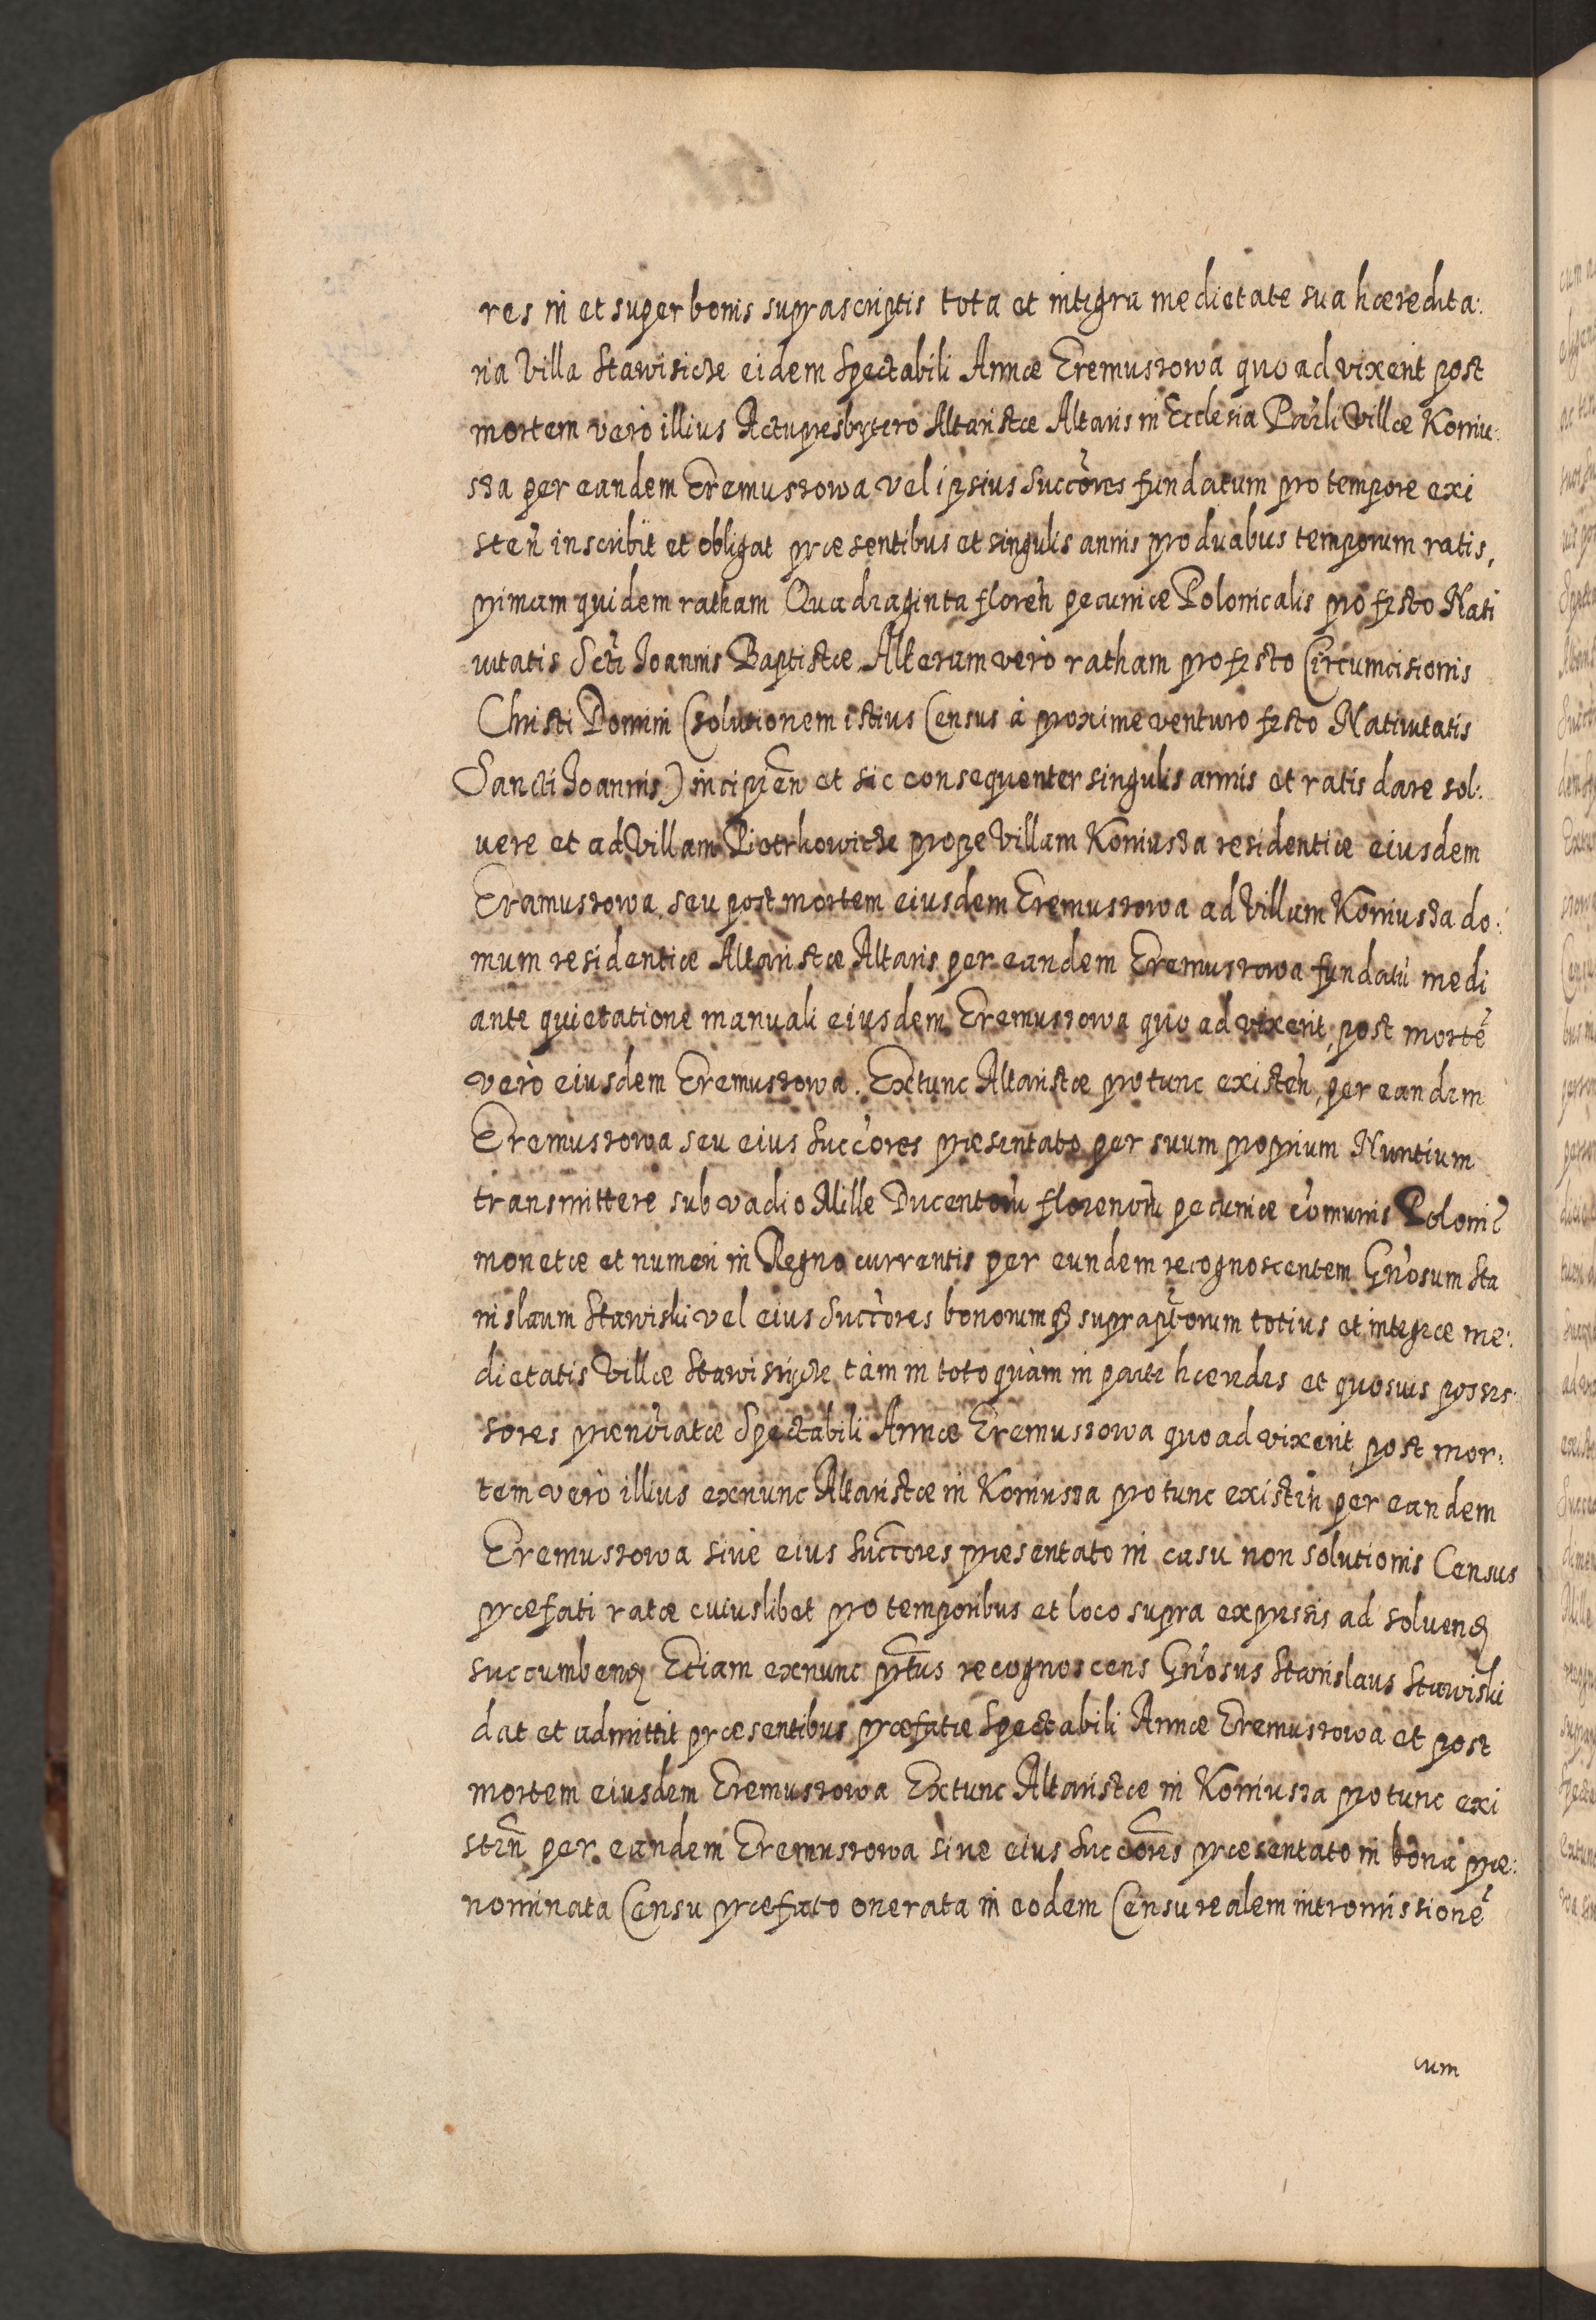 res in et super bonis suprascriptis tota et integra medietate sua hæredita:
ria Villa Stawisicze eidem Spectabili Annæ Eremusowa quo ad vixerit post
mortem vero illius Actupresbytero Altaristæ Altaris in Ecclesia Paŕli Villæ Koniu:
sza per eandem Eremusowa vel ipsius Succores fundatum pro tempore exi
steñ inscribit et obligat præsentibus et singulis annis pro duabus temporum ratis,
primam quidem ratham Quadraginta floreñ pecuniæ Polonicalis pro festo Nati
uitatis Scti Joannis Baptistæ Alteram vero ratham pro festo Circumcisionis
Christi Domini (solutionem istius Census à proxime venturo festo Natiuitatis
Sancti Joannis) incipieñ et sic consequenter singulis annis et ratis dare sol:
uere et ad Villam Piotrkowicze prope Villam Koniusza residentiæ eiusdem
Eramusowa, seu post mortem eiusdem Eremusowa ad Villam Koniusza do:
mum residentiæ Altaristæ Altaris per eandem Eremusowa fundatũ medi
ante quietatione manuali eiusdem Eremusowa quo ad vixerit, post mortẽ
verò eiusdem Eremusowa. Extunc Altaristæ pro tunc existeñ, per eandem
Eremusowa seu eius Succores præsentato per suum proprium Nuntium
transmittere sub vadio Mille Ducentorũ florenorũ pecuniæ cõmunis Poloniĉ
monetæ et numeri in Regno currentis per eundem recognoscentem Gñosum Sta
nislaum Stawiski vel eius Succores bonorumq₃ supraptorum totius et integræ me:
dietatis Villæ Stawisicze tàm in toto quàm in parte hæredes et quosuis posses:
sores prænoĩatæ Spectabili Annæ Eremusowa quo ad vixerit, post mor:
tem verò illius exnunc Altaristæ in Koniusza pro tunc existeñ per eandem
Eremusowa siue eius Succores præsentato in casu non solutionis Census
præfati ratæ cuiuslibet pro temporibus et loco supra expressis ad soluend
succumbend Etiam exnunc prñs recognoscens Gñosus Stanislaus Stawiski
dat et admittit præsentibus præfatæ Spectabili Annæ Eremusowa et post
mortem eiusdem Eremusowa Extunc Altaristæ in Koniusza pro tunc exi
steñ per eandem Eremusowa siue eius Succores præsentato in bona præ:
nominata Censu præfato onerata in eodem Censu realem intromissionẽ
cum